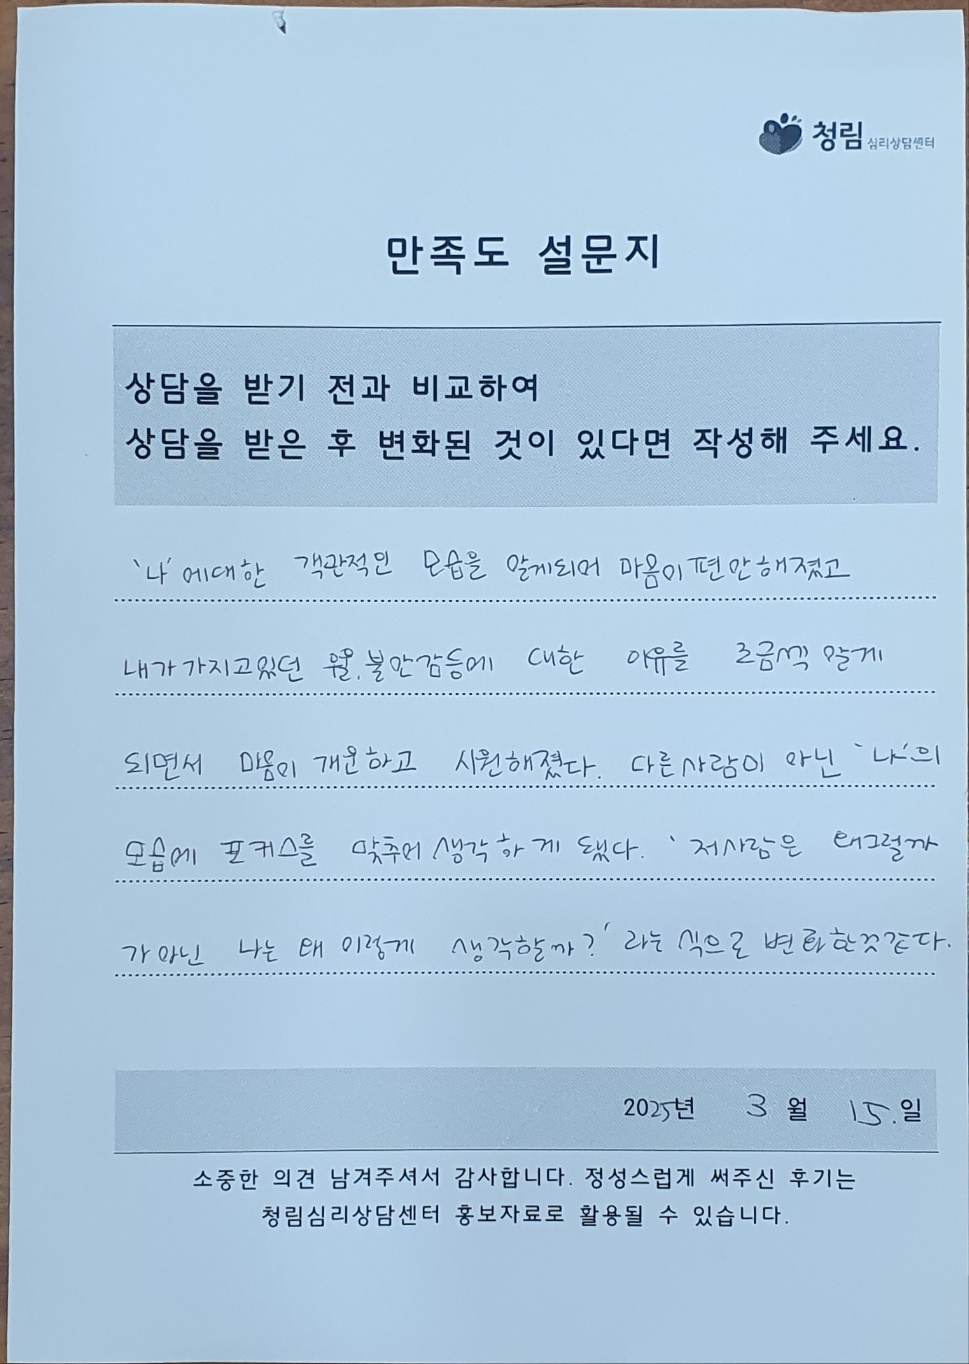 청림 심리상담센터
만족도 설문지
상담을 받기 전과 비교하여
상담을 받은 후 변화된 것이 있다면 작성해 주세요.
'나'에대한 객관적인 모습을 알게되며 마음이 편안해졌고
내가 가지고있던 우울, 불안감등에 대한 이유를 조금씩 알게
되면서 마음이 개운하고 시원해졌다. 다른사람이 아닌 '나'의
모습에 포커스를 맞추어 생각하게 됐다. '저사람은 왜그럴까
가 아닌 나는 왜 이렇게 생각할까?' 라는 식으로 변화한것같다.
2025년 3월 15.일
소중한 의견 남겨주셔서 감사합니다. 정성스럽게 써주신 후기는
청림심리상담센터 홍보자료로 활용될 수 있습니다.